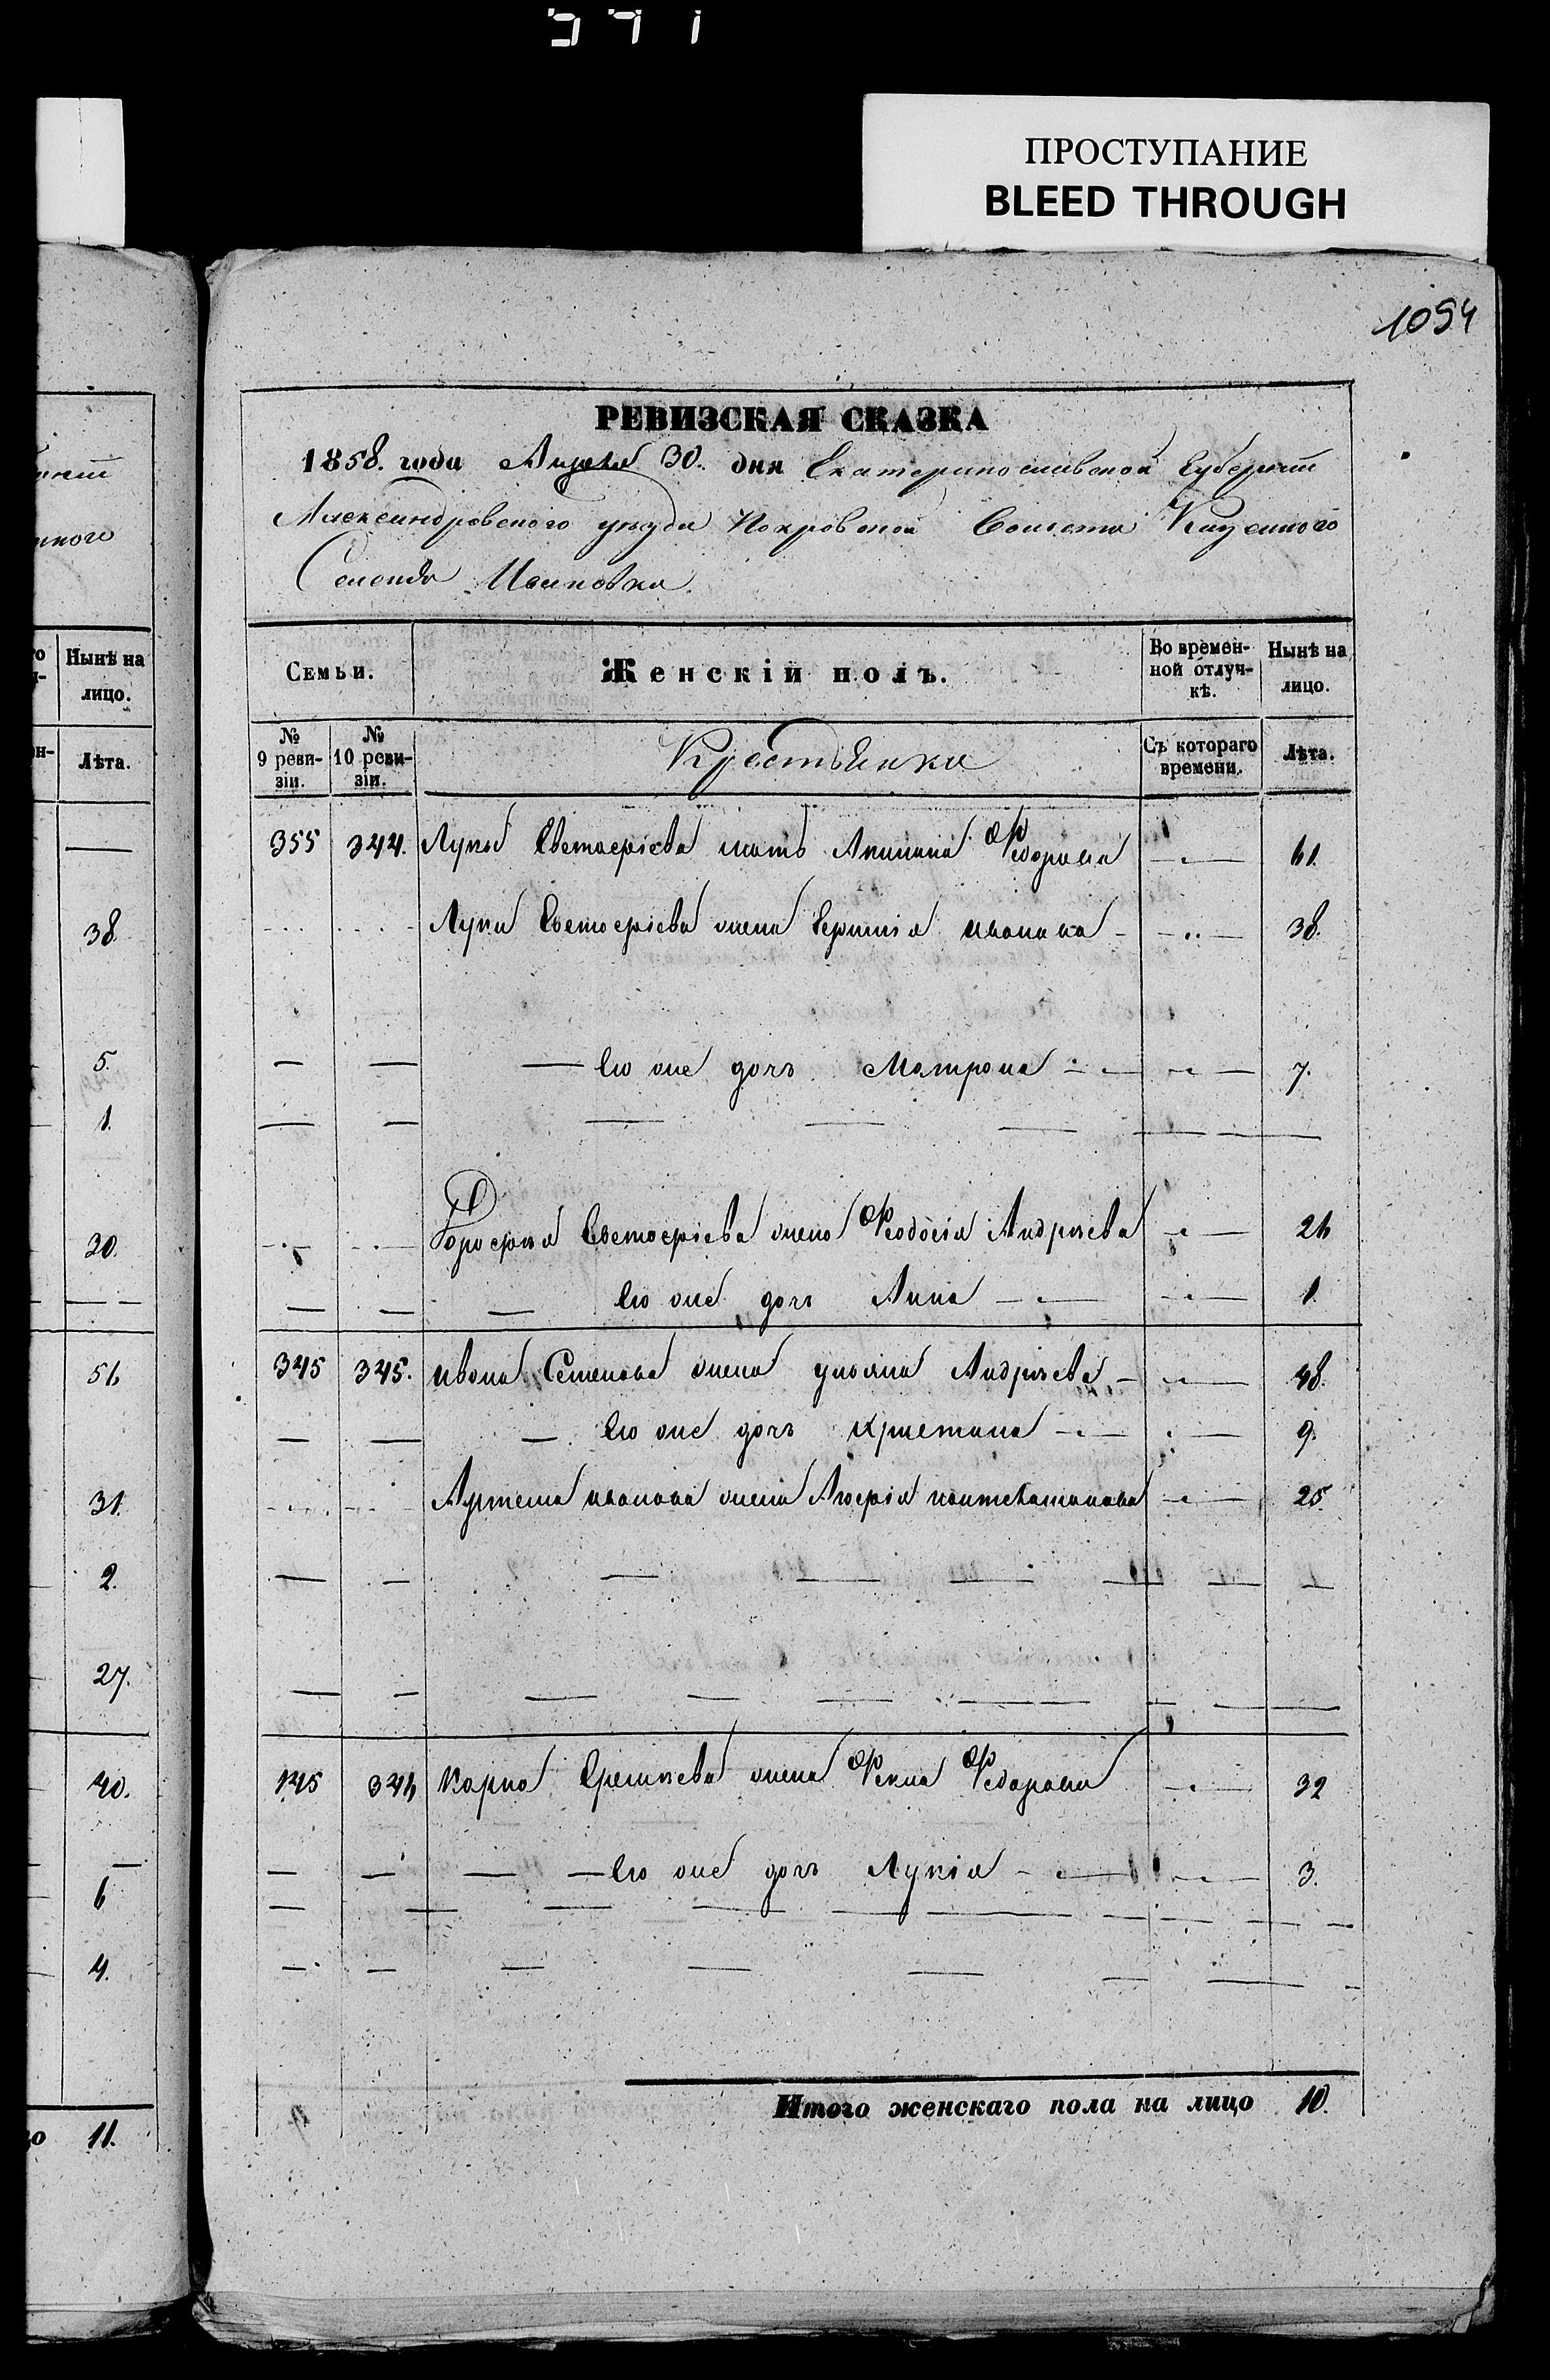 ПРОСТУПАНИЕ
BLEED THROUGH
1094
РЕВИЗСКАЯ СКАЗКА
1858. года Апреля 30. дня Екатеринославской Губернии
Александровского уезда Покровской Волости Казенного
Селения Ивановки.
Семьи.
Женскій полъ.
Во времен-
ной отлуч-
кѣ.
Нынѣ на
лицо.
№
9 реви-
зіи.
№
10 реви-
зіи.
Крестьянки
Съ котораго
времени.
Лѣта.
355 344. Луки Евстафіева мать Акилина Федорова 61.
Луки Евстафіева жена ивонова 38.
Ею же дочъ Матрона 7.
Дорофея Евстафіева жена Феодосія Андреева 26
Ею же дочъ Анна 1.
345 345. ивона Семенова жена улияна Андреева 48.
Ею же дочъ христина 9.
Артема иванова жена 25.
145 346 Карпа жена Федорова 32
Ею же дочъ Лукія 3.
Итого женскаго пола на лицо 10.
Нынѣ на
лицо.
Лѣта.
38
5.
1.
30.
51.
31.
2.
27.
40.
6
4.
11.